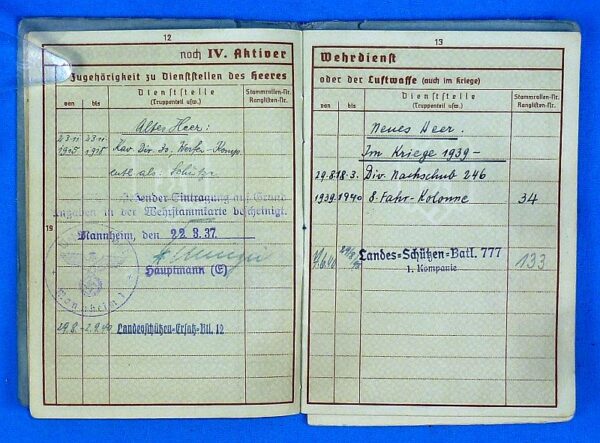 12
noch IV. Aktiver
Zugehörigkeit zu Dienststellen des Heeres
von
bis
Dienststelle
(Truppenteil usw.)
Stammrollen-Nr.
Ranglisten-Nr.
Altes Heer:
23.11. 23.11.
Kav. Div.
entl. als: Schütze
stehender Eintragung auf Grund
Angaben in der Wehrstammkarte bescheinigt.
19
Mannheim, den 22.8.37.
Hauptmann (E)
Mannheim 1
29.8.- 2.9.40 Landesschützen-Ersatz-Btl. 12
13
Wehrdienst
oder der Luftwaffe (auch im Kriege)
von
bis
Dienststelle
(Truppenteil usw.)
Stammrollen-Nr.
Ranglisten-Nr.
Neues Heer.
Im Kriege 1939-
29.8. 18.3. Div. Nachschub 246
1939. 1940 8. Fahr-Kolonne 34
Landes-Schützen-Batl. 777 133
1. Kompanie